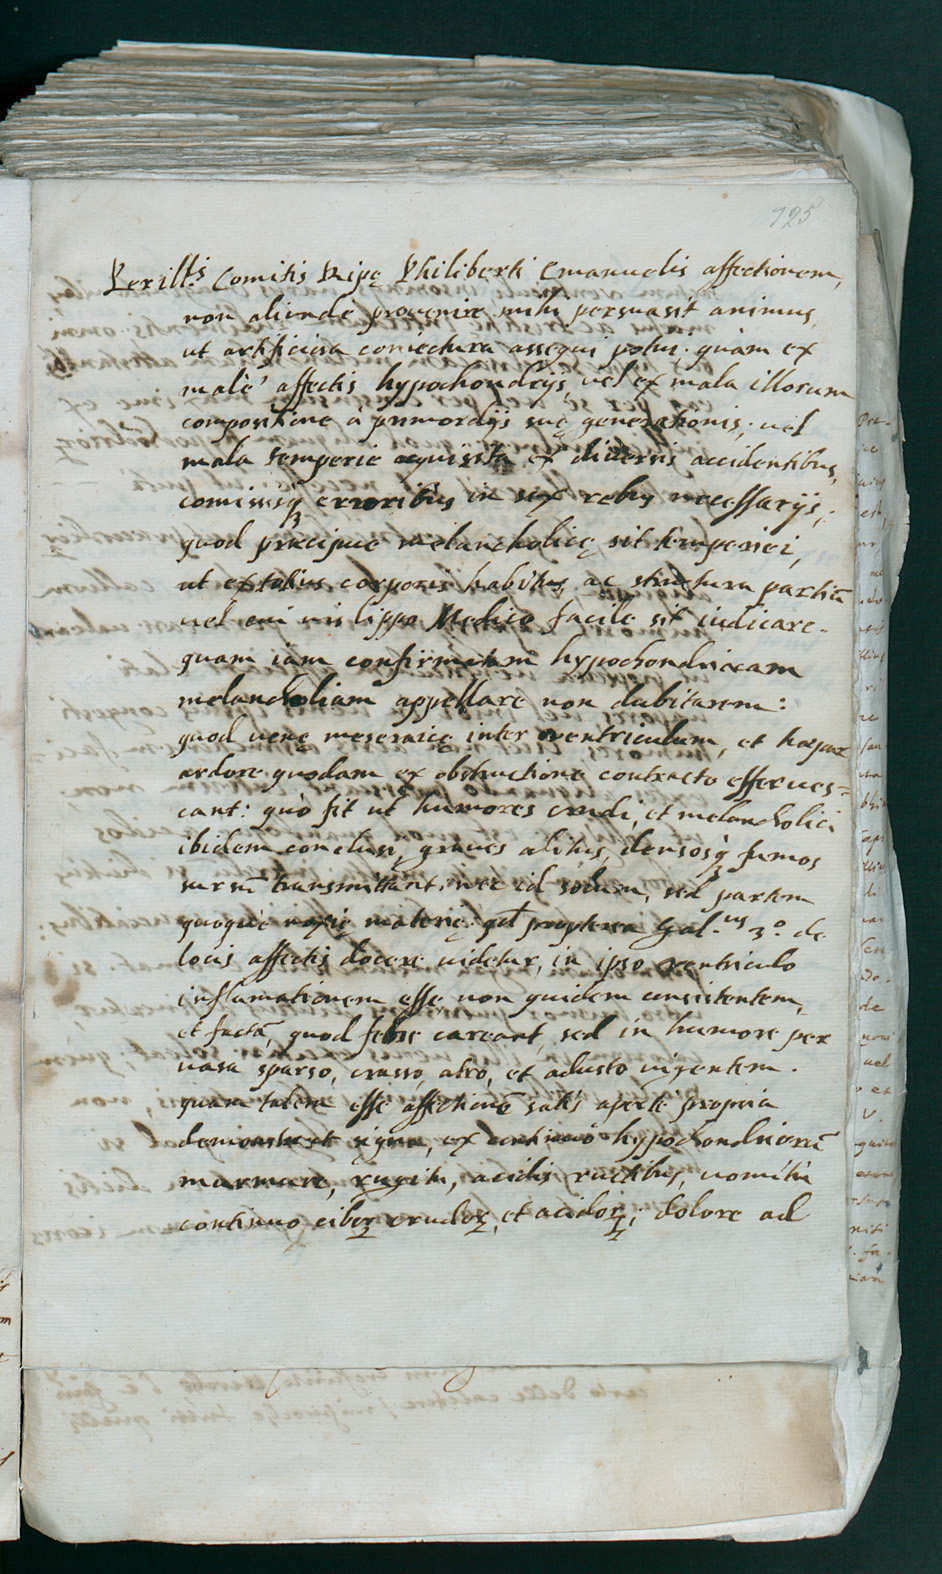 125
Perill.ris Comitis Ripę Philiberti Emanuelis affectionem,
non aliundè provenire mihi persuasit animus,
ut artificiosa coniectura assequi potui, quàm ex
malè affectis hypochondrijs, vel ex mala illorum
compositione à primordijs suę generationis, vel
mala temperie acquisita ex diversis accidentibus,
comissisq; erroribus in sex rebus necessarijs,
quod precipue melancholicę sit temperiei,
ut ex totius corporis habitu, ac structura partiū
vel cui vis lippo Medico facile sit iudicare.
quam iàm confirmatam hypochondriacam
melancholiam appellare non dubitarem:
quod venę meseraicę inter ventriculum, et hæpar
ardore quodam ex obstructione contracto efferves=
cant: quò fit ut humores crudi, et melancholici
ibidem conclusi, graves alitus, densosq; fumos
sursū transmittant, nec id solum, sed partem
quoque noxię materię: qd propterea Gal.us 3.o de
locis affectis docere videtur, in ipso ventriculo
inflamationem esse non quidem consistentem,
et factā, quod febre careant, sed in humore per
vasa sparso, crasso, atro, et adusto vigentem.
quam talem esse affectionē satis apertè propria
demonstrant signa, ex continuo hypochondriorū
murmure, rugitu, acidis ructibus, vomitu
continuo cibor. crudor. et acidor.; dolore ad